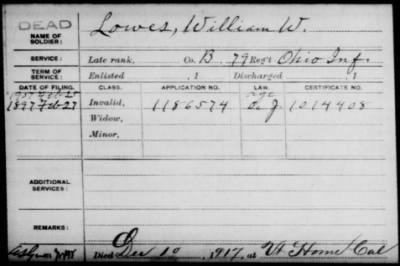 DEAD
NAME OF SOLDIER: Lowes, William W.
SERVICE: Late rank, Co. B, 79 Reg't Ohio Inf.
TERM OF SERVICE: Enlisted , 1 Discharged , 1
DATE OF FILING. CLASS. APPLICATION NO. LAW. CERTIFICATE NO.
1897 Feb-27 Invalid, 1186574 1014408
Widow,
Minor,
ADDITIONAL SERVICES:
REMARKS:
Died Dec 10, 1917, at Vt Home Cal